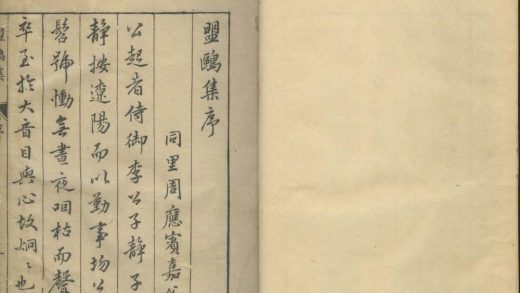 盟鷗集序
同里周應賓嘉
公起者侍御李公子靜子
靜按遼陽而以勤事場公
髫號慟無晝夜咽枯而聲
卒至於大音目與心故烱〻也